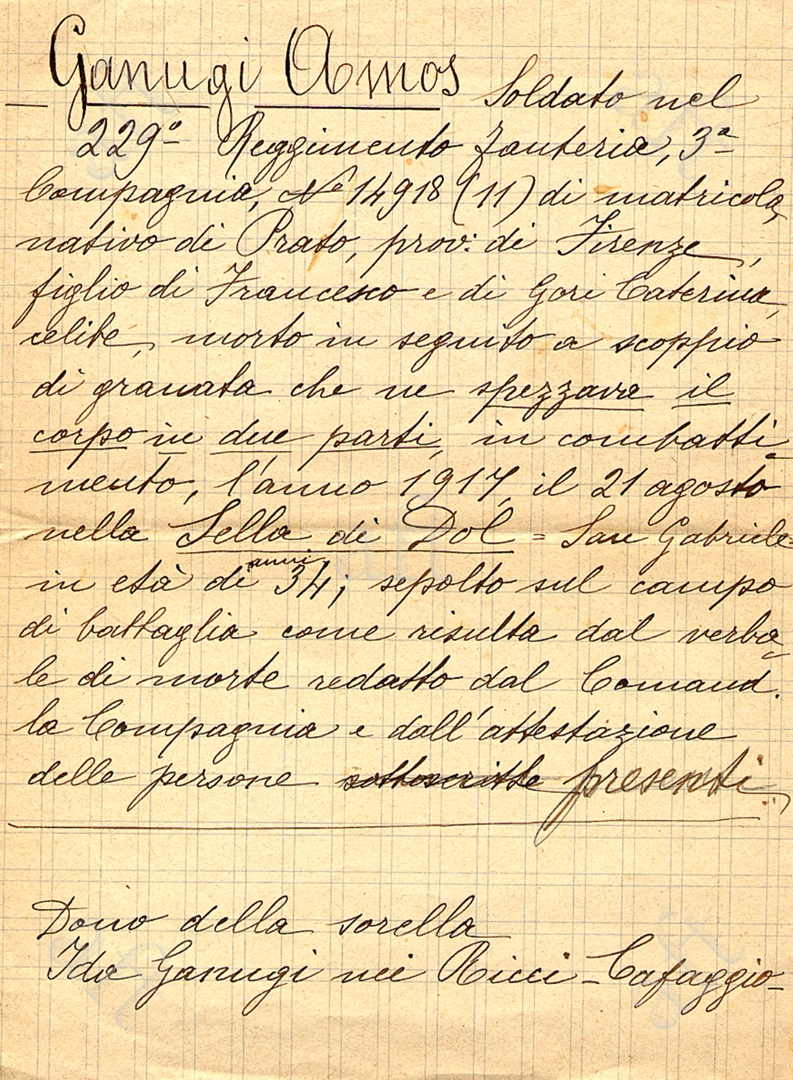 Ganugi Amos Soldato nel
229º Reggimento fanteria, 3ª
Compagnia, Nº 14918 (11) di matricola,
nativo di Prato, prov: di Firenze,
figlio di Francesco e di Gori Caterina,
celibe, morto in seguito a scoppio
di granata che ne spezzava il
corpo in due parti, in combatti-
mento, l'anno 1917, il 21 agosto
nella Sella di Dol = San Gabriele
in età di anni 34; sepolto sul campo
di battaglia come risulta dal verba-
le di morte redatto dal Comand.
la Compagnia e dall'attestazione
delle persone sottoscritte presenti.
Dono della sorella
Ida Ganugi nei Ricci - Cafaggio -